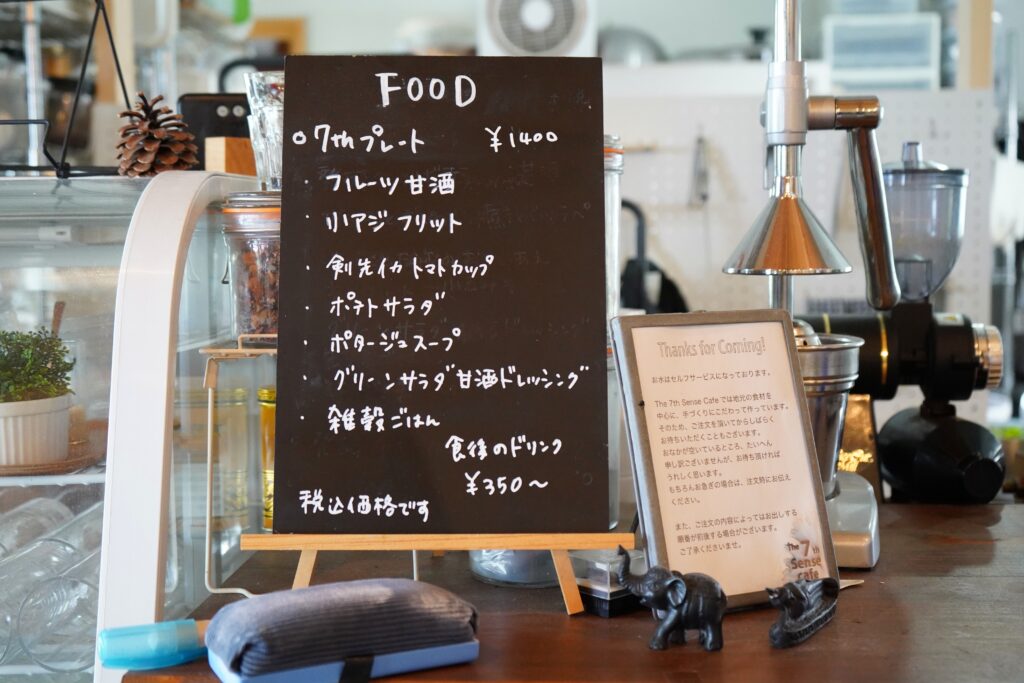 FOOD
○ 7thプレート ¥1400
・フルーツ甘酒
・小アジフリット
・剣先イカトマトカップ
・ポテトサラダ
・ポタージュスープ
・グリーンサラダ甘酒ドレッシング
・雑穀ごはん
食後のドリンク
¥350〜
税込価格です
Thanks for Coming!
お水はセルフサービスになっております。
The 7th Sense Cafe では地元の食材を
中心に、手づくりにこだわって作っています。
そのため、ご注文を頂いてからしばらく
お待ちいただくこともございます。
おなかが空いているところ、たいへん
申し訳ございませんが、お待ち頂ければ
うれしく思います。
もちろんお急ぎの場合は、注文時にお伝え
ください。
また、ご注文の内容によってはお出しする
順番が前後する場合がございます。
ご了承くださいませ。
The 7th
Sense
cafe